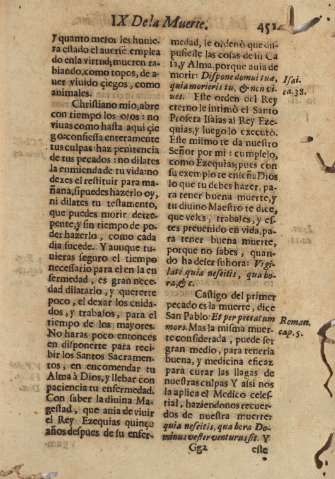 IX De la Muerte. 452
y quanto mejor les huvie-
ra estado el averse emplea
do en la virtud, mueren ra-
biando, como topos, de a-
ver vivido ciegos, como
animales.
Christiano mio, abre
con tiempo los ojos: no
vivas como hasta aqui cie
go: confiessa enteramente
tus culpas: haz penitencia
de tus pecados: no dilates
la enmienda de tu vida: no
dexes el restituir para ma-
ñana, si puedes hazerlo oy,
ni dilates tu testamento,
que puedes morir derre-
pente, y sin tiempo de po-
der hazerlo, como cada
dia sucede. Y aunque tu-
vieras seguro el tiempo
necessario para el en la en
fermedad, es gran nece-
dad dilatarlo, y quererte
poco, el dexar los cuida-
dos, y trabajos, para el
tiempo de los mayores.
No haras poco entonces
en disponerte para reci-
bir los Santos Sacramen-
tos, en encomendar tu
Alma à Dios, y llebar con
paciencia tu enfermedad.
Con saber la divina Ma-
gestad, que avia de vivir
el Rey Ezequias quinze
años despues de su enfer-
medad, le ordenò que dis-
pusiesse las cosas de su Ca
sa, y Alma, porque avia de
morir: Dispone domui tuæ,
quia morieris tu, & non vi-
ves. Este orden del Rey
eterno le intimò el Santo
Profeta Isaias al Rey Eze-
quias, y luego lo executò.
Este mismo te da nuestro
Señor por mi: cumplelo,
como Ezequias; pues con
su exemplo te enseña Dios
lo que tu debes hazer, pa-
ra tener buena muerte, y
tu divino Maestro te dice,
que veles, trabajes, y es-
tes prevenido en vida, pa-
ra tener buena muerte,
porque no sabes, quan-
do ha de ser su hora: Vigi-
late quia nescitis, qua ho-
ra, &c.
Castigo del primer
pecado es la muerte, dice
San Pablo: Et per peccatum
mors. Mas la misma muer-
te considerada, puede ser
gran medio, para tenerla
buena, y medicina eficaz
para curar las llagas de
nuestras culpas Y assi nos
la aplica el Medico celes-
trial, haziendonos recuer-
dos de nuestra muerte:
quia nescitis, qua hora Do-
minus vester venturus sit. Y
Gg2 este
Isai.
ca.38.
Roman.
cap.5.